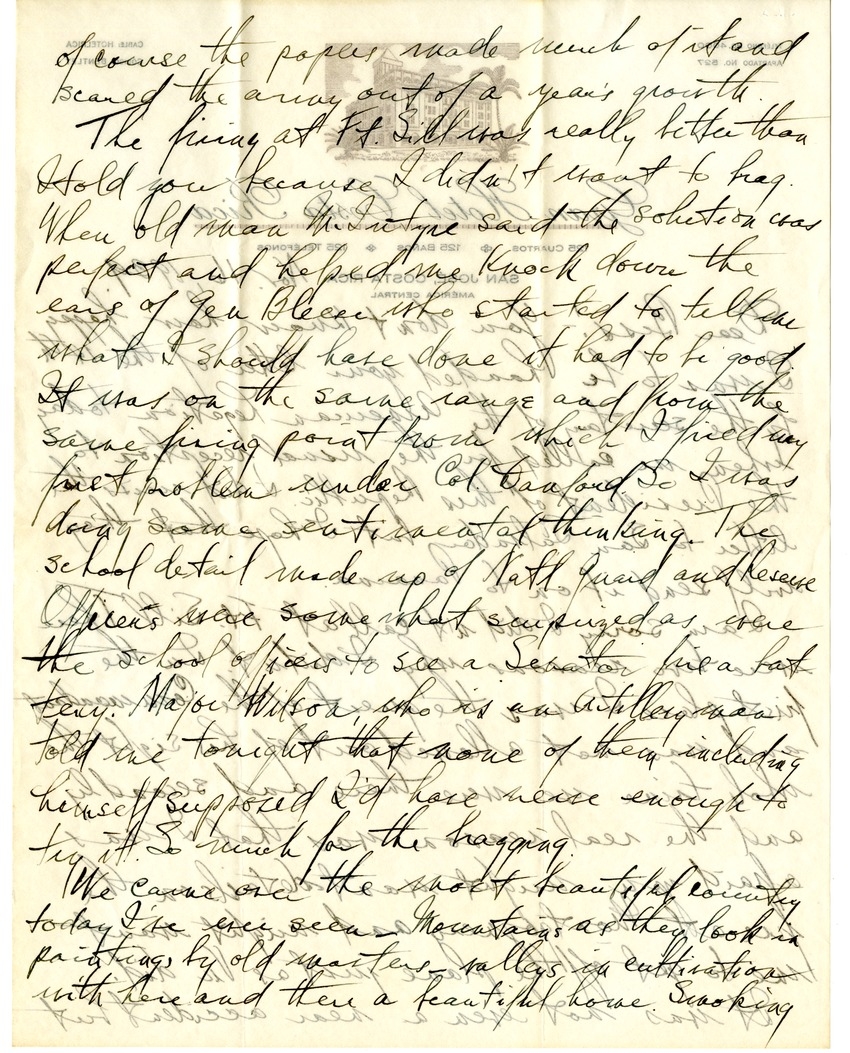 of course the papers made much of it and
scared the army out of a year's growth.
The firing at Ft. Sill was really better than
I told you because I didn't want to brag.
When old man McIntyre said the solution was
perfect and helped me knock down the
ears of Gen who started to tell me
what I should have done it had to be good.
It was on the same range and from the
same firing point from which I fired my
first problem under Col. Danford. So I was
doing some sentimental thinking. The
school detail made up of Natl Guard and Reserve
Officers were somewhat surprized as were
the school officers to see a Senator fire a bat
tery. Major Wilson, who is an artilleryman
told me tonight that none of them including
himself supposed I'd have nerve enough to
try it. So much for the bragging.
We came over the most beautiful country
today I've ever seen – Mountains as they look in
paintings by old masters – valleys in cultivation
with here and there a beautiful home. Smoking